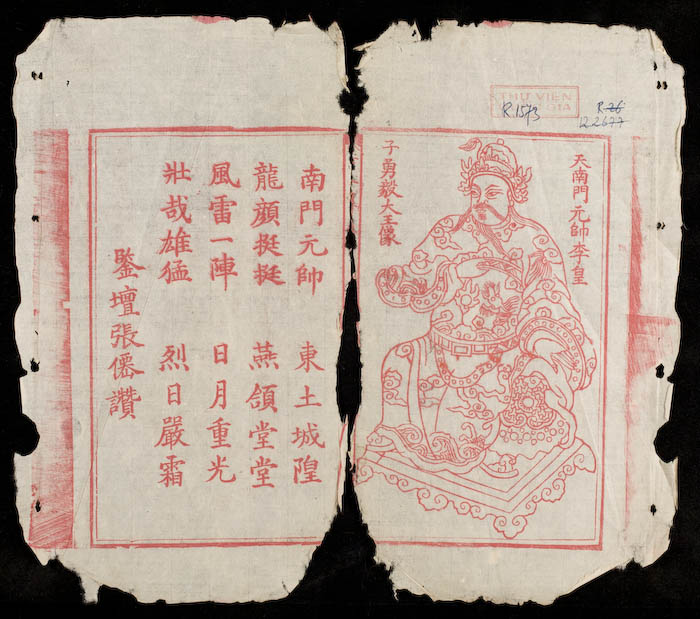 THƯ VIỆN
R.1573
R.26
R.2677
天南門元帥李皇
子勇毅大王像
南門元帥 東土城隍
龍顏挺挺 燕頷堂堂
風雷一陣 日月重光
壯哉雄猛 烈日嚴霜
鑒壇張僊讚